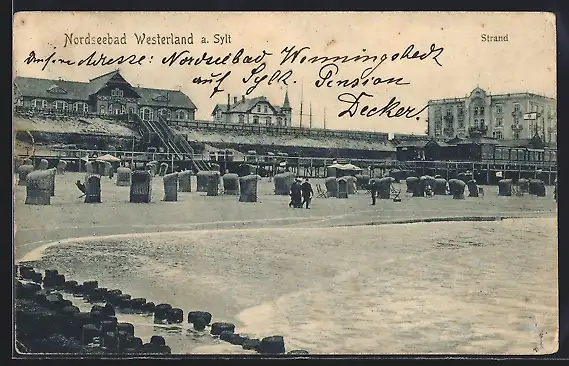 Nordseebad Westerland a. Sylt
Strand
Adresse: Nordseebad Wenningstedt
auf Sylt. Pension
Decker.